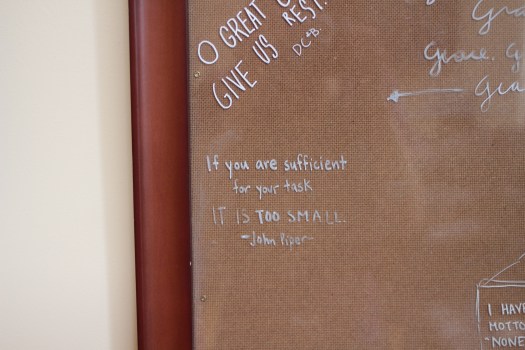 O GREAT
GIVE US REST!
DC*B.
Gra
Grace. G
Gra
If you are sufficient
for your task
IT IS TOO SMALL.
-John Piper-
I HAVE
MOTTO
"NONE